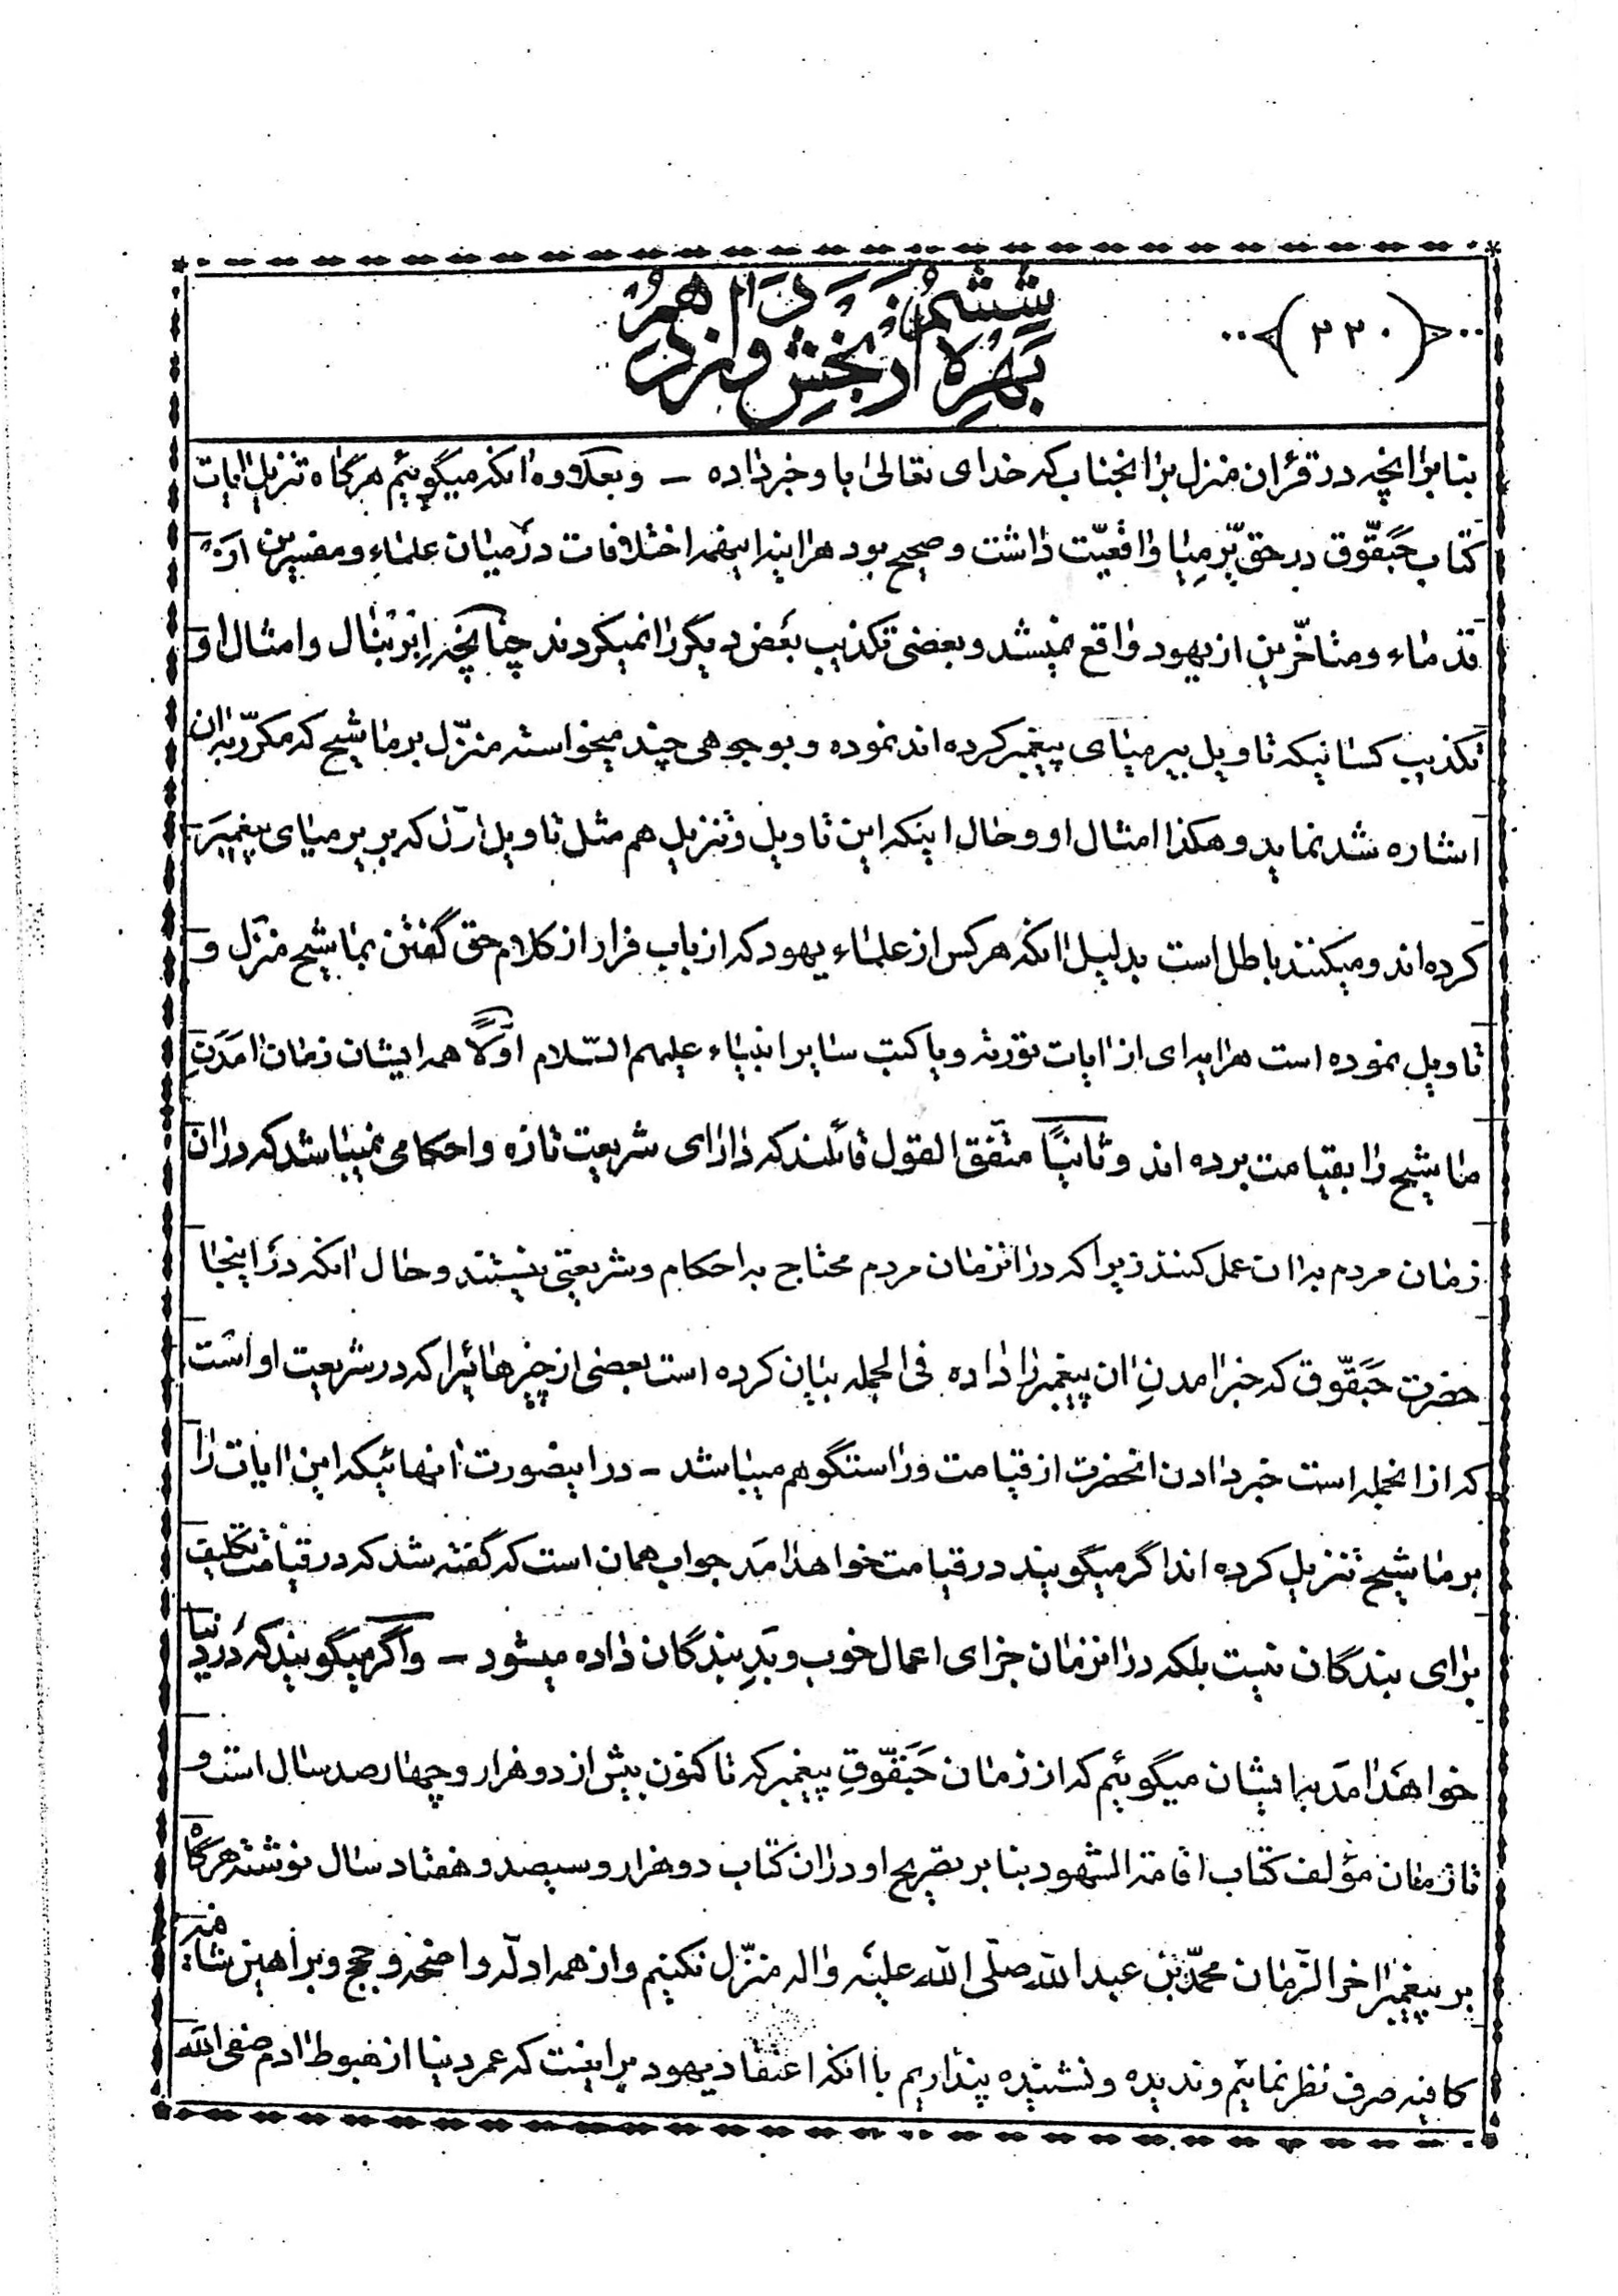 (۲۲۰)
بهره ششم از بخش دوازدهم
بنا بر اانچه در قرءان منزل بر اانجناب که خدای تعالی باو خبر داده – و بعلاوه اانکه میگوئیم هرگاه تنزیل اایات
کتاب حَبَقّوق در حق یِرمِیا واقعیّت داشت و صحیح بود هراینه اینهمه اختلافات در میان علماء و مفسرین از
قدماء و متاخّرین از یهود واقع نمیشد و بعضی تکذیب بعض دیگر را نمیکردند چنانچه و امثال او
تکذیب کسانیکه تاویل بیرمیای پیغمبر کرده اند نموده و بوجوهی چند میخواسته منزّل بر ماشیح که مکرّر به اان
اشاره شد نماید و هکذا امثال او و حال اینکه این تاویل و تنزیل هم مثل تاویل اوّل که بر یرمیای پیغمبر
کرده اند و میکنند باطل است بدلیل اانکه هر کس از علماء یهود که از باب فرار از کلام حق گفتن بماشیح منزل و
تاویل نموده است هر اایه ای از اایات توریة و یا کتب سایر انبیاء علیهم السّلام اوّلاً همه ایشان زمان اامَدَنِ
ماشیح را بقیامت برده اند و ثانیاً متّفق القول قائلند که دارای شریعت تازه و احکامی نمیباشد که در اان
زمان مردم به اان عمل کنند زیرا که در اانزمان مردم محتاج به احکام و شریعتی نیستند و حال اانکه در اینجا
حضرت حَبَقّوق که خبر اامدنِ اان پیغمبر را داده فی الجمله بیان کرده است بعضی از چیزهائیرا که در شریعت او است
که از اانجمله است خبر دادن اانحضرت از قیامت و راستگو هم میباشد – در اینصورت اانهائیکه این اایات را
بر ماشیح تنزیل کرده اند اگر میگویند در قیامت خواهد اامَد جواب همان است که گفته شد که در قیامت تکلیف
برای بندگان نیست بلکه در اانزمان جزای اعمال خوب و بَدِ بندگان داده میشود – و اگر میگویند که در دنیا
خواهَد اامَد به ایشان میگوئیم که از زمان حَبَقّوقِ پیغمبر که تا کنون بیش از دو هزار و چهارصد سال است و
تا زمان مؤلف کتاب اقامة الشهود بنا بر تصریح او در اان کتاب دو هزار و سیصد و هفتاد سال نوشته هرگاه
بر پیغمبر ااخر الزمان محمّد بن عبد الله صلّی الله علیه و اله منزّل نکنیم و از همه ادلّه واضحه و حجج و براهین شافیه
کافیه صرف نظر نمائیم و ندیده و نشنیده پنداریم با اانکه اعتقاد یهود بر اینست که عمر دنیا از هبوط اادم صفی الله